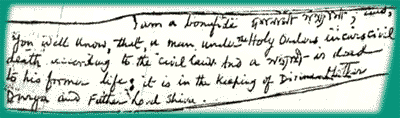 I am a bonafide সন্ন্যাসী; and,
You well know, that a man under Holy Orders incurs Civil
death according to the Civil Laws and a সন্ন্যাসী is dead
to his former life; it is in the keeping of Divine Mother
Durga and Father Lord Shiva.